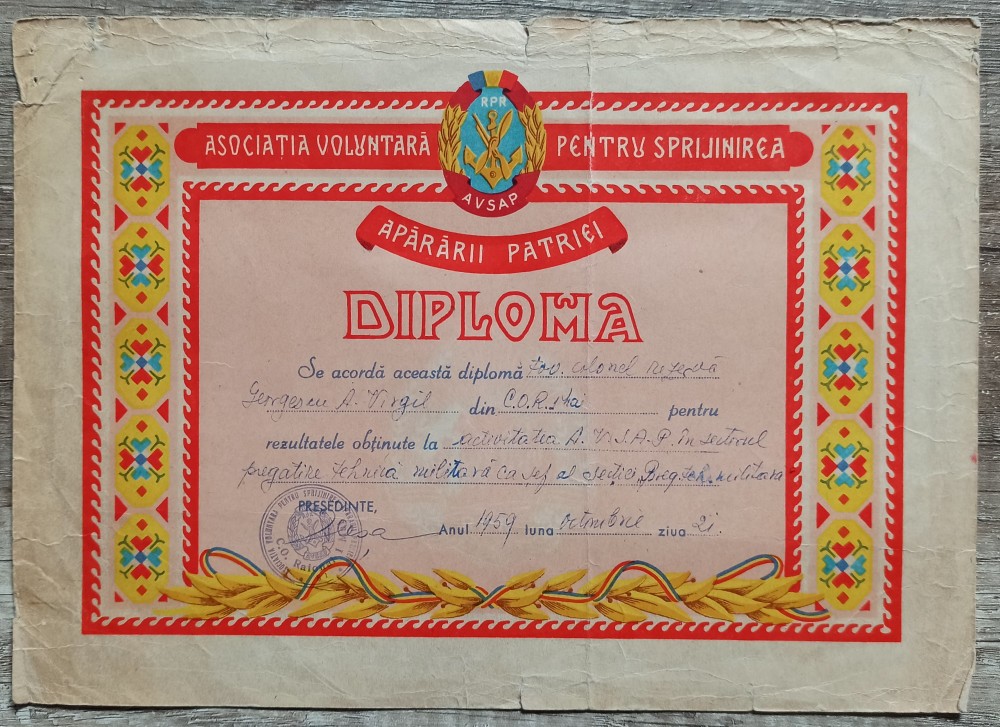 RPR
ASOCIAȚIA VOLUNTARĂ PENTRU SPRIJINIREA
AVSAP
APĂRĂRII PATRIEI
DIPLOMA
Se acordă această diplomă tov. colonel rezervă
Georgescu A. Virgil din C.O.R. pentru
rezultatele obținute la activitatea A.V.S.A.P. în sectorul
pregătire tehnică militară ca șef al secției Preg. teh. militară
PREȘEDINTE,
Anul 1959 luna octombrie ziua 21.